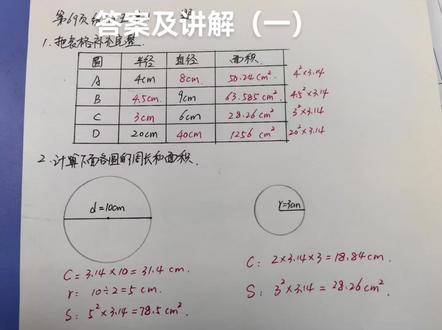 第69页
答案及讲解（一）
1.把表格补充完整.
圆 半径 直径 面积
A 4cm 8cm 50.24cm² 4²×3.14
B 4.5cm 9cm 63.585cm² 4.5²×3.14
C 3cm 6cm 28.26cm² 3²×3.14
D 20cm 40cm 1256cm² 20²×3.14
2.计算下面各圆的周长和面积.
d=10cm
r=3cm
C=3.14×10=31.4cm.
r: 10÷2=5cm.
S: 5²×3.14=78.5cm².
C: 2×3.14×3=18.84cm.
S: 3²×3.14=28.26cm²